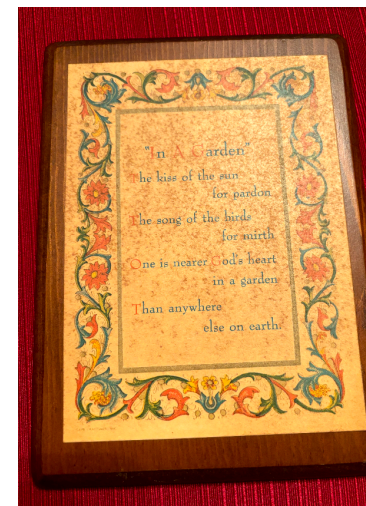 "In A Garden"
The kiss of the sun
for pardon
The song of the birds
for mirth
One is nearer God's heart
in a garden
Than anywhere
else on earth.